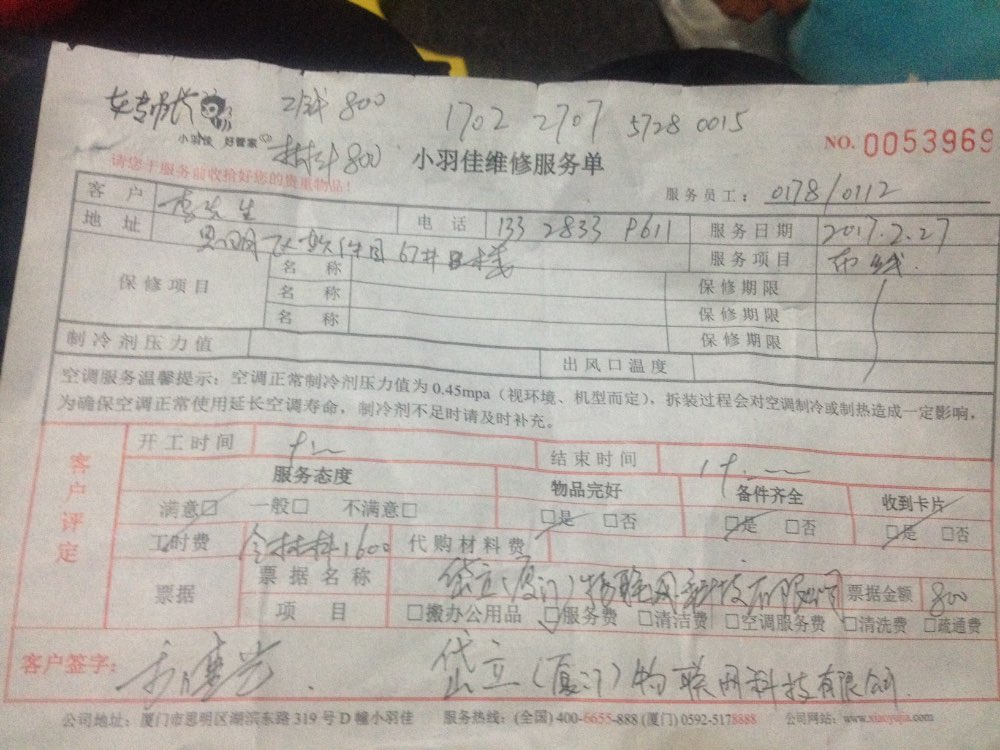 工钱 800
1702 2707 5728 0015
NO. 0053969
小羽佳 好管家
材料 800
小羽佳维修服务单
请您于服务前收拾好您的贵重物品!
服务员工: 0178/0112
客户 李先生 电话 133 2833 9611 服务日期 2017.2.27
地址 思明区软件园 服务项目 布线
保修项目 名称 保修期限
名称 保修期限
名称 保修期限
制冷剂压力值 出风口温度
空调服务温馨提示:空调正常制冷剂压力值为 0.45mpa(视环境、机型而定),拆装过程会对空调制冷或制热造成一定影响,
为确保空调正常使用延长空调寿命,制冷剂不足时请及时补充。
客户评定
开工时间 结束时间
服务态度 物品完好 备件齐全 收到卡片
满意□ 一般□ 不满意□ □是 □否 □是 □否 □是 □否
工时费 含材料1600 代购材料费
票据 票据名称 岱立(厦门)物联网科技有限公司 票据金额 800
项目 □搬办公用品 □服务费 □清洁费 □空调服务费 □清洗费 □疏通费
客户签字: 岱立(厦门)物联网科技有限公司
公司地址:厦门市思明区湖滨东路 319 号 D 幢小羽佳 服务热线:(全国) 400-6655-888 (厦门) 0592-5178888 公司网站:www.xiaoyujia.com